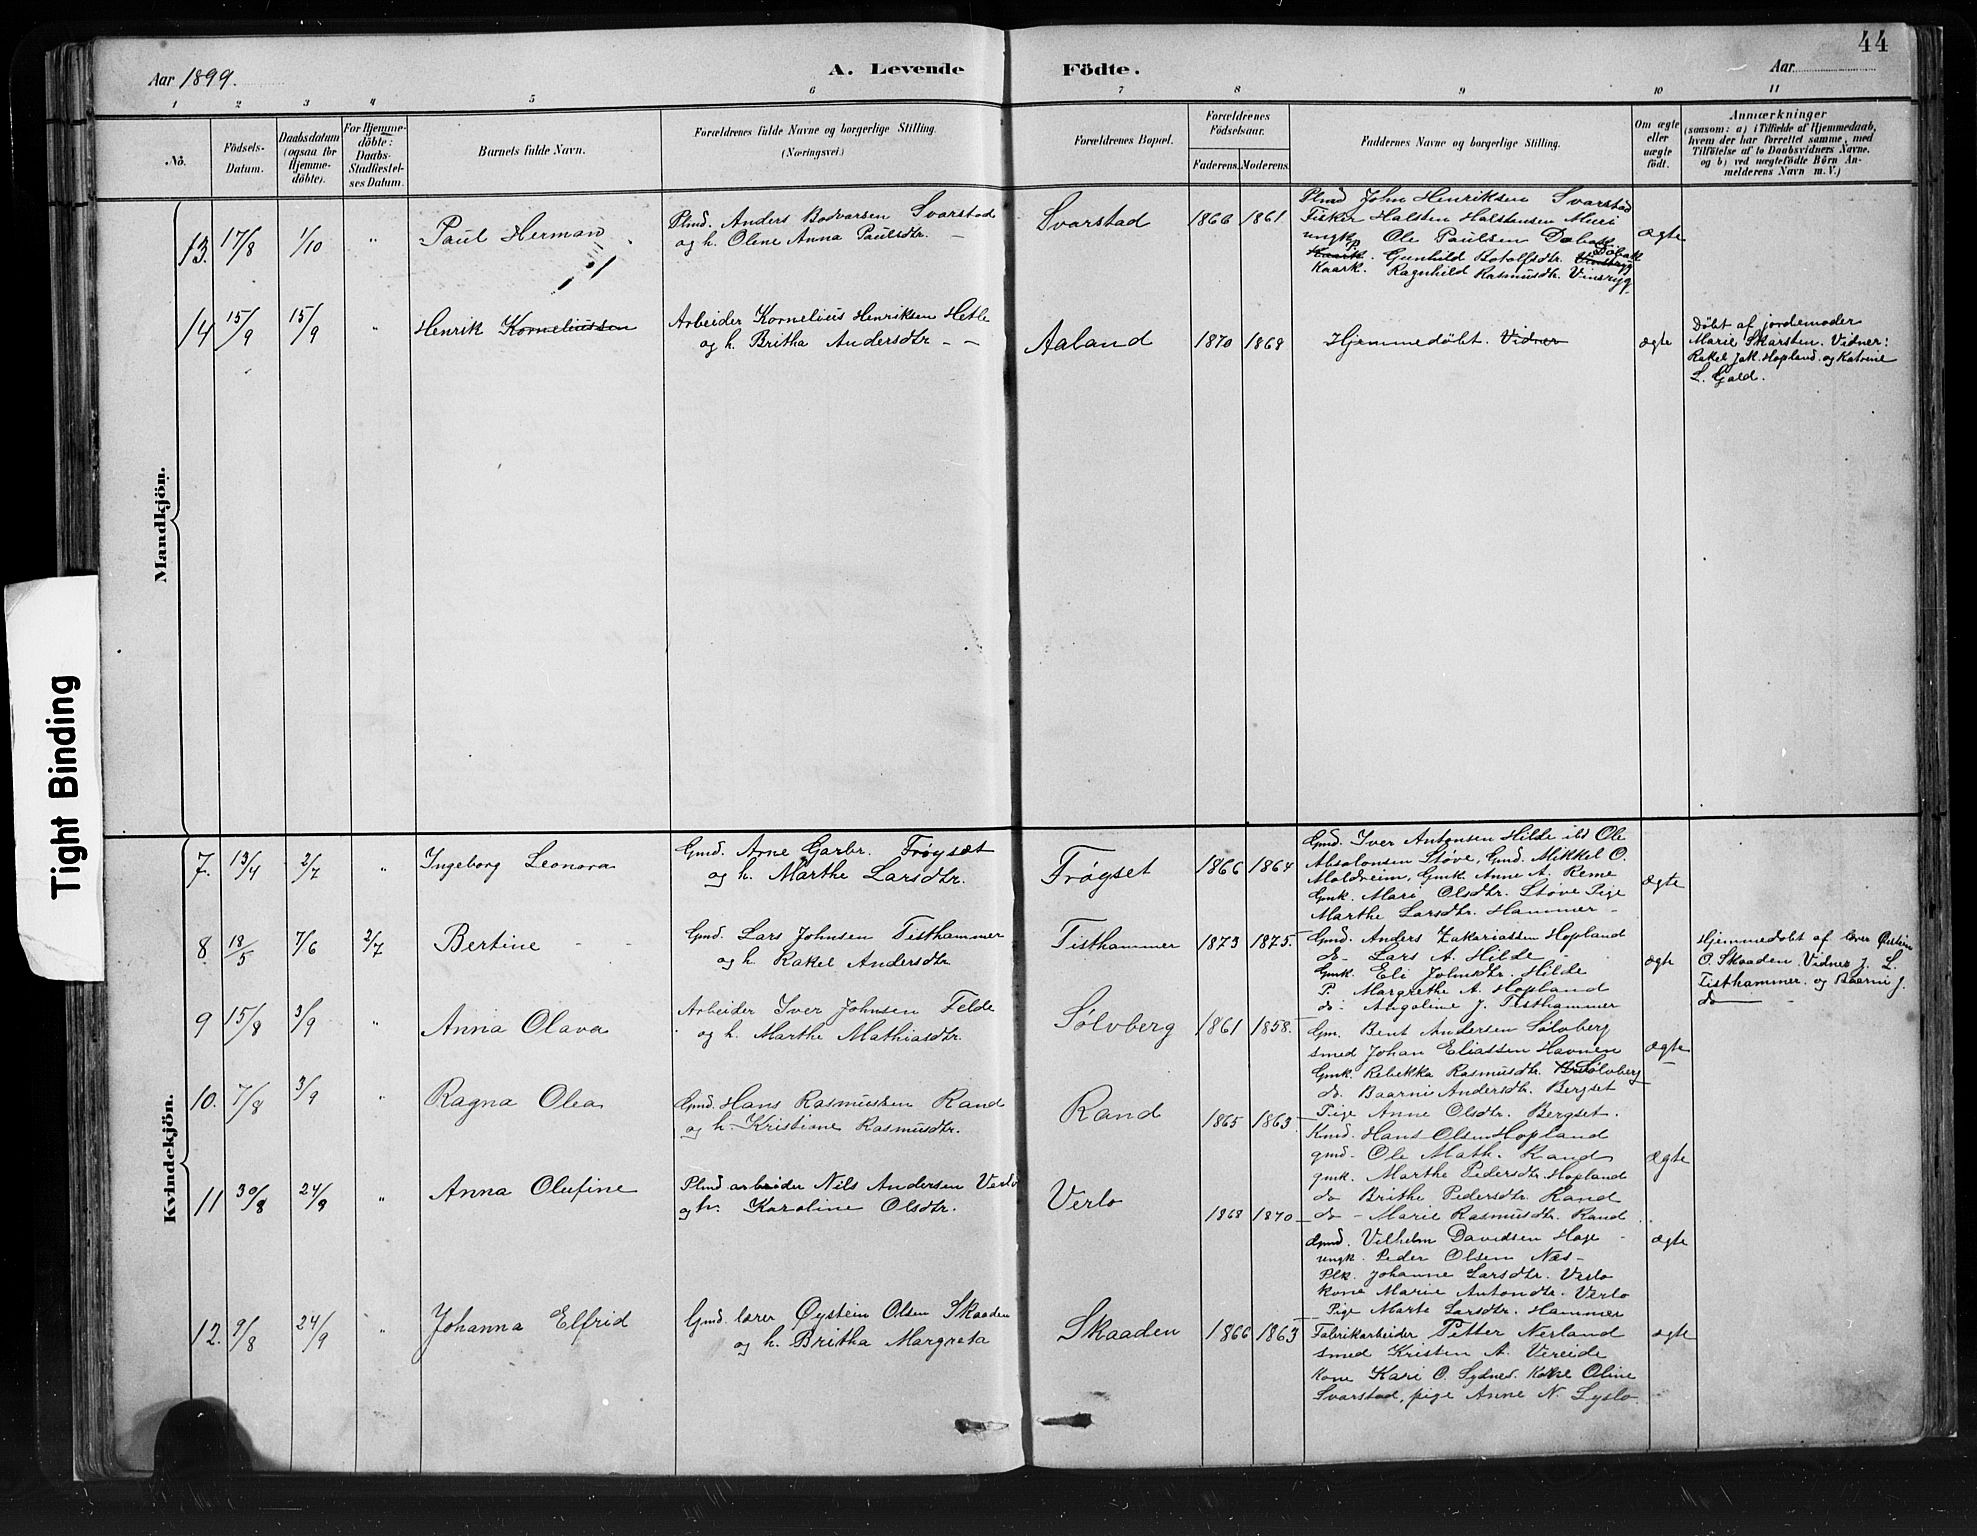 44
Aar 1899.
A. Levende Födte.
Aar
1 2 3 4 5 6 7 8 9 10 11
No.
Födsels-Datum.
Daabsdatum (ogsaa for Hjemme-döbte).
For Hjemme-döbte: Daabs-Stadfæstel-ses Datum.
Barnets fulde Navn.
Forældrenes fulde Navne og borgerlige Stilling. (Næringsvei.)
Forældrenes Bopæl.
Forældrenes Födselsaar.
Faderens. Moderens.
Faddernes Navne og borgerlige Stilling.
Om ægte eller uægte födt.
Anmærkninger
(saasom: a) i Tilfælde af Hjemmedaab,
hvem der har forrettet samme, med
Tilföielse af to Daabsvidners Navne.
og b) ved uægtefödte Börn An-
melderens Navn m. V.)
Mandkjön.
13. 17/8 1/10 " Paul Herman
Plmd. Anders Bodvarsen Svarstad
og h. Oline Anna Paulsdtr. -
Svarstad 1866 1861
Plmd John Henriksen Svarstad
Fisker Halsten Halstensen Muri
ungk. Ole Paulsen Døbak
Kaark. P. Gunhild Botolfsdtr. Vinsryg Døbak
Kaark. Ragnhild Rasmusdtr. Vinsryg.
ægte
14 15/9 15/9 " Henrik Korneliussen
Arbeider Kornelius Henriksen Hetle
og h. Britha Andersdtr - -
Aaland 1870 1868
Hjemmedøbt. Vidner
ægte
Døbt af jordemoder
Marie Skarsten. Vidner:
Rakel Jak. Hopland. og Katrine
L. Gald.
Tight Binding
Kvindekjön.
7. 13/4 2/7 " Ingeborg Leonora
Gmd. Arne Garbr. Frøyset
og h. Marthe Larsdtr.
Frøyset 1866 1864
Gmd. Iver Antonsen Hilde ibd Ole
Absolonsen Støve, Gmd. Mikkel O.
Moldreim, Gmk Anne A. Reme
Gmk. Mari Olsdtr. Støve Pige
Marthe Larsdtr. Hammer -
ægte
8 18/5 7/6 2/7 Bertine
Gmd. Lars Johnsen Tisthammer
og h. Rakel Andersdtr
Tisthammer 1873 1875.
Gmd. Anders Zakariassen Hopland
do - Lars A. Hilde -
Gmk. Eli Johnsdtr. Hilde
P. Margrethe A. Hopland
do. Angoline J. Tisthammer
ægte
Hjemmedøbt af lærer Østein
O. Skaaden Vidner J. L.
Tisthammer. og Baarni J.
do
9 15/8 3/9 " Anna Olava
Arbeider Iver Johnsen Felde
og h. Marthe Mathiasdtr.
Sølvberg 1861 1858.
Gm. Bent Andersen Sølvberg
smed Johan Eliassen Havnen
Gmk. Rebekka Rasmusdtr. Sølvberg
do. Baarni Andersdtr. Bergset
Pige Anne Olsdtr. Bergset.
ægte
10. 7/8 3/9 " Ragna Olea
Gmd. Hans Rasmussen Rand
og h. Kristiane Rasmusdtr.
Rand 1865 1863
Kmd. Hans Olsen Hopland
gmd. Ole Math. Rand
gmk. Marthe Pedersdtr. Hopland
do Brithe Pedersdtr. Rand
do - Marie Rasmusdtr. Rand
ægte
11 30/8 24/9 " Anna Olufine
Plmd arbeider Nils Andersen Verlo
og h. Karoline Olsdtr.
Verlo 1868 1870
Gmd. Vilhelm Davidsen Hage -
ungk. Peder Olsen Næs -
Plk. Johanne Larsdtr. Verlo
Kone Marie Antondtr. Verlo
Pige Marte Larsdtr. Hammer
ægte
12. 9/8 24/9 " Johanna Elfrid
Gmd. lærer Øystein Olsen Skaaden
og h. Britha Margreta
Skaaden 1866 1863
Fabrikarbeider Petter Nerland
smed Kristen A. Vereide
Kone Kari O. Sydnes. Kone Oline
Svarstad, pige Anne N. Lyslo
ægte